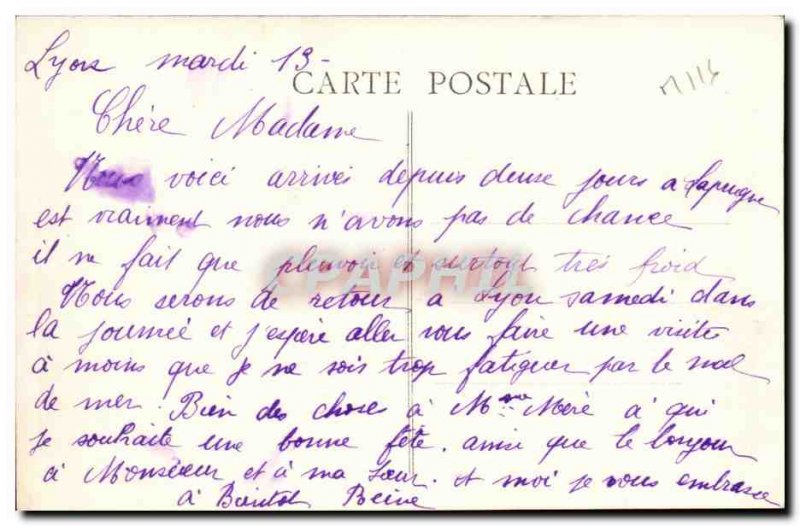 Lyon mardi 13-
CARTE POSTALE
Chère Madame
Nous voici arrivés depuis deuse jours a
est vraiment nous n'avons pas de chance
il ne fait que pleuvoir et surtout très froid
Nous serons de retour a Lyon samedi dans
la journeé et j'espère aller vous faire une visite
à moins que je ne sois trop fatiguer par le mal
de mer. Bien des chose à Mme Meré à qui
je souhaite une bonne fête. ainsi que le bonjour
à Monsieur et à ma sœur. et moi je vous embrasse
à Bientot Reine